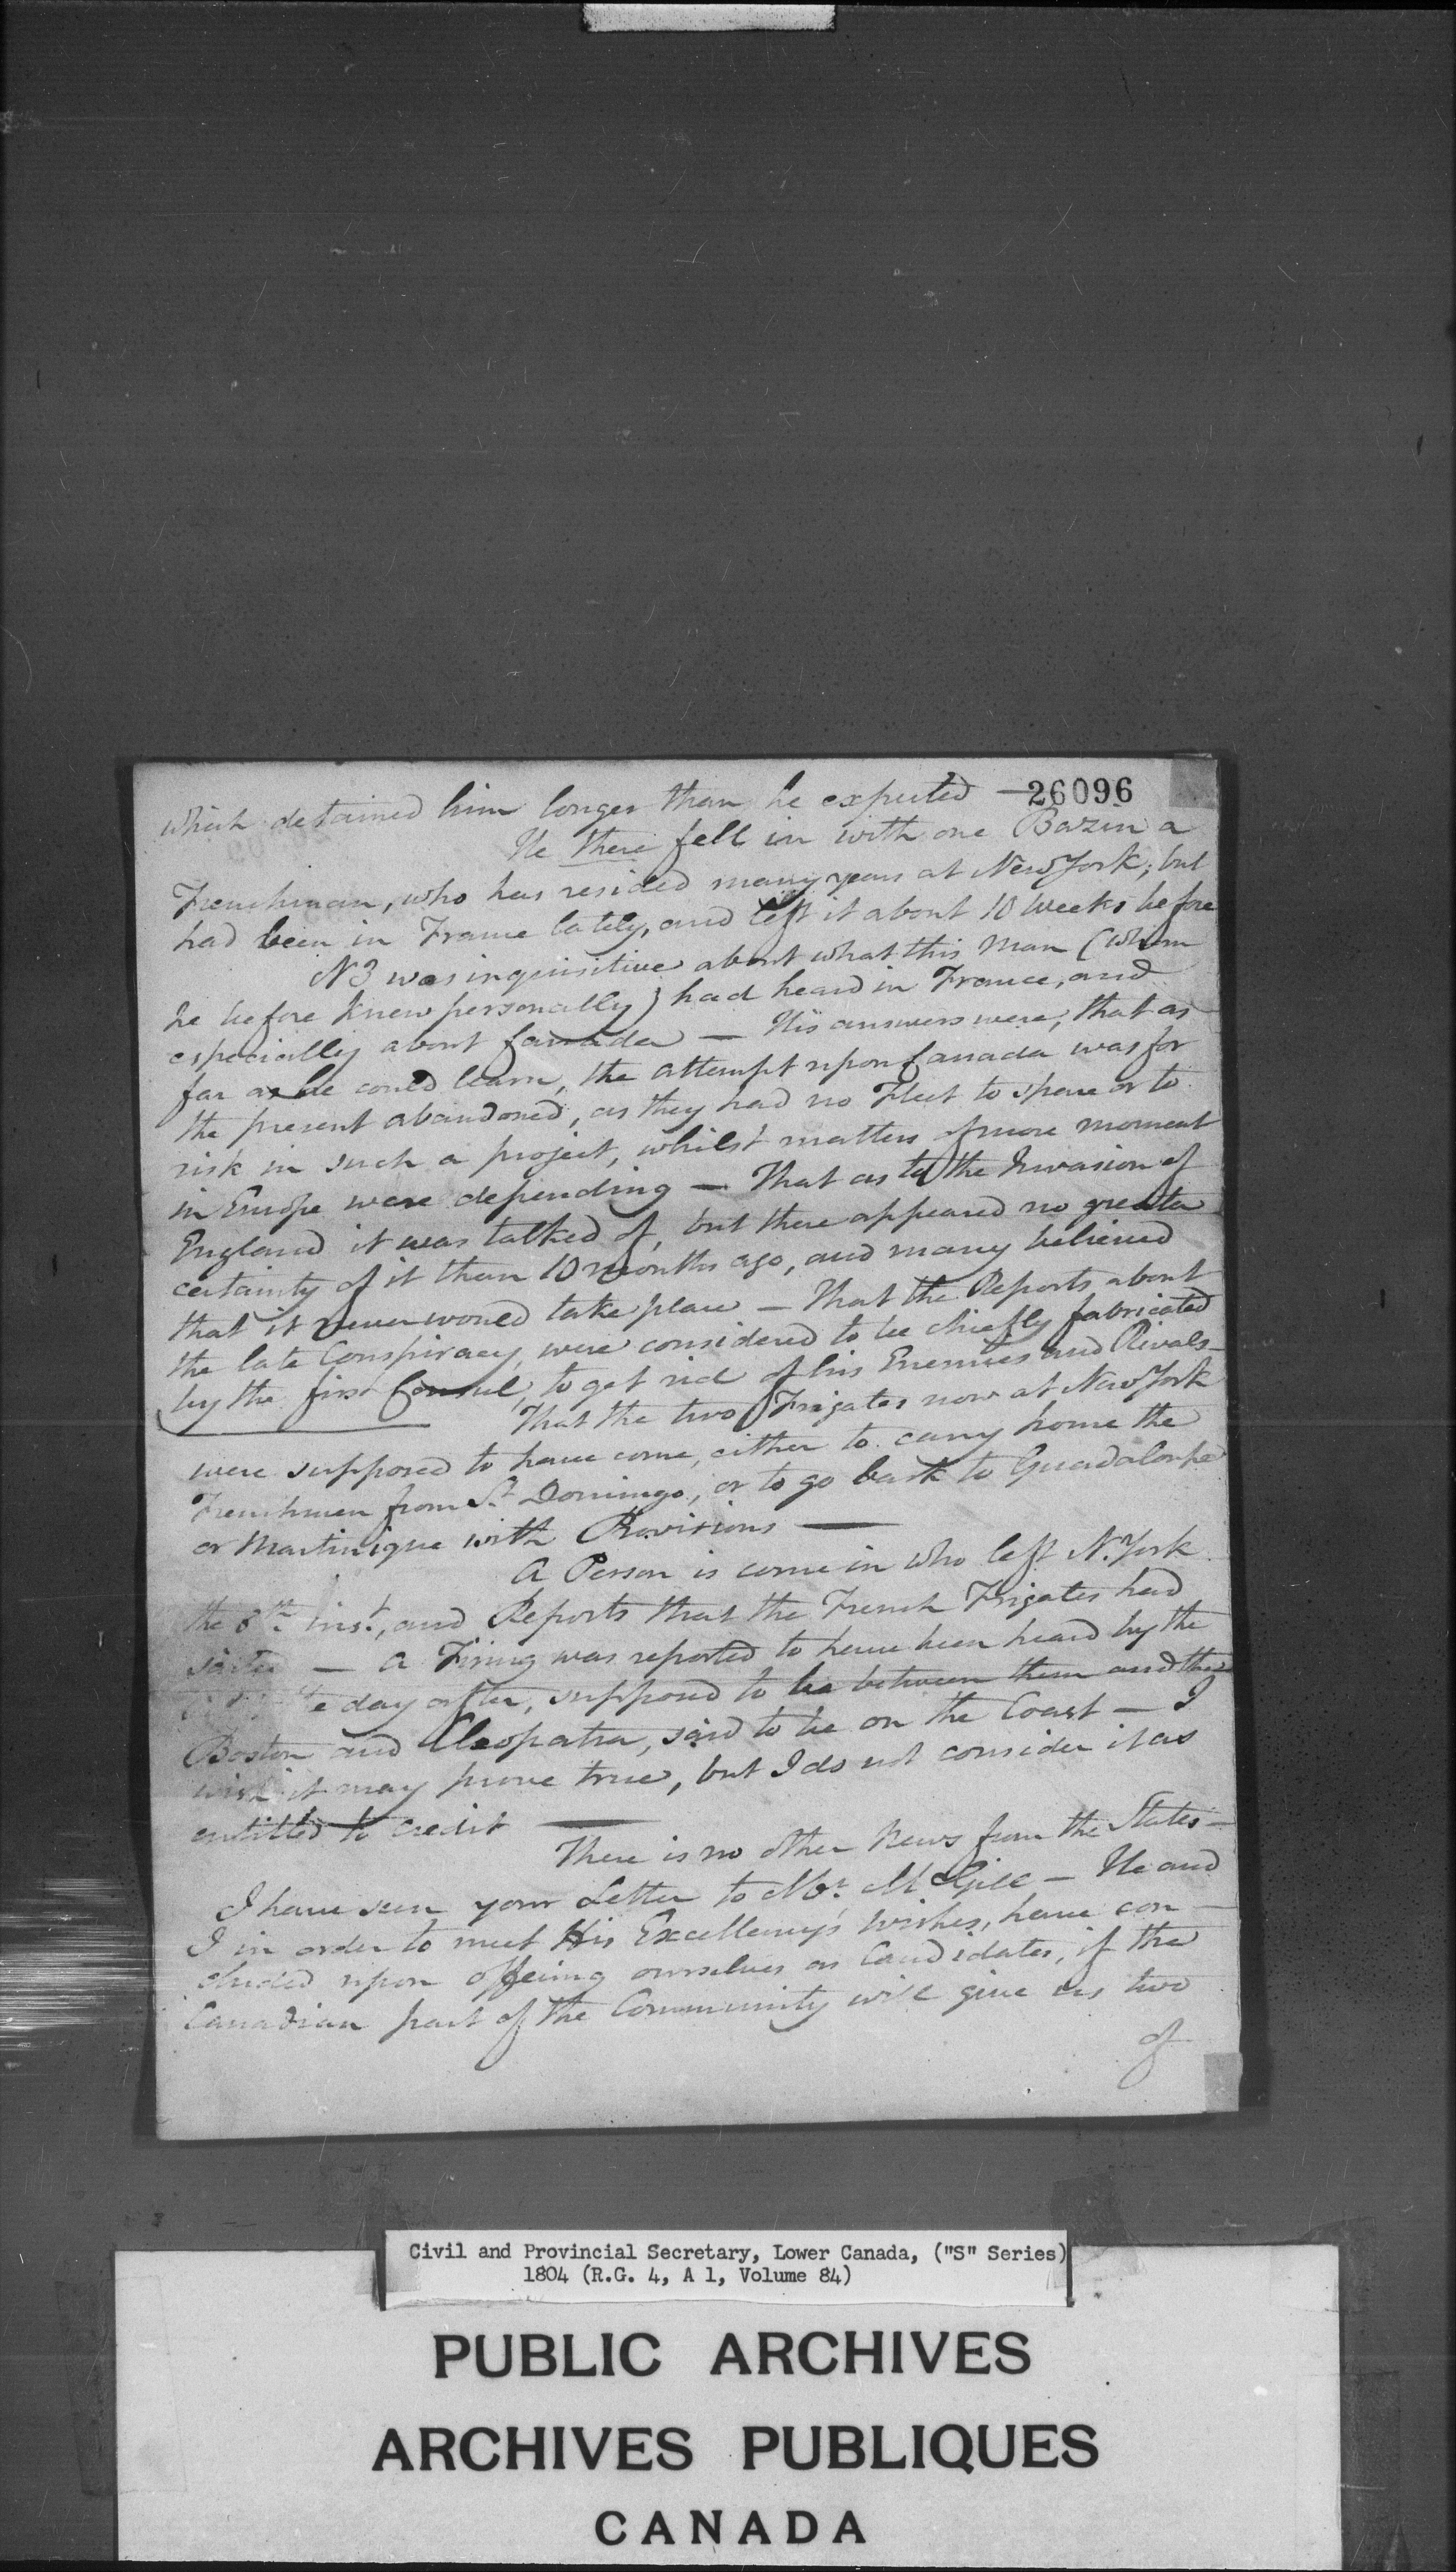 26096
which detained him longer than he expected —
He there fell in with one Bazin a
Frenchman, who has resided many years at New York; but
had been in France lately, and left it about 10 Weeks before
N3 was inquisitive about what this Man (whom
he before knew personally) had heard in France, and
especially about Canada — His answers were, that as
far as he could learn, the attempt upon Canada was for
the present abandoned, as they had no Fleet to spare or to
risk in such a project, whilst matters of more moment
in Europe were depending — That as to the Invasion of
England it was talked of, but there appeared no greater
certainty of it than 10 months ago, and many believed
that it never would take place — That the Reports about
the late Conspiracy, were considered to be chiefly fabricated
by the first Consul, to get rid of his Enemies and Rivals —
That the two Frigates now at New York
were supposed to have come, either to carry home the
Frenchmen from St Domingo, or to go back to Guadaloupe
or Martinique with Provisions —
A Person is come in who left N. York
the 8th inst, and Reports that the French Frigates had
sailed — A Firing was reported to have been heard by the
day after, supposed to be between them and the
Boston and Cleopatra, said to be on the Coast — I
wish it may prove true, but I do not consider it as
entitled to credit —
There is no other News from the States —
I have seen your Letter to Mr. McGill — He and
I in order to meet His Excellency's wishes, have con-
cluded upon offering ourselves as Candidates, if the
Canadian part of the Community will give us two
of
Civil and Provincial Secretary, Lower Canada, ("S" Series)
1804 (R.G. 4, A 1, Volume 84)
PUBLIC ARCHIVES
ARCHIVES PUBLIQUES
CANADA